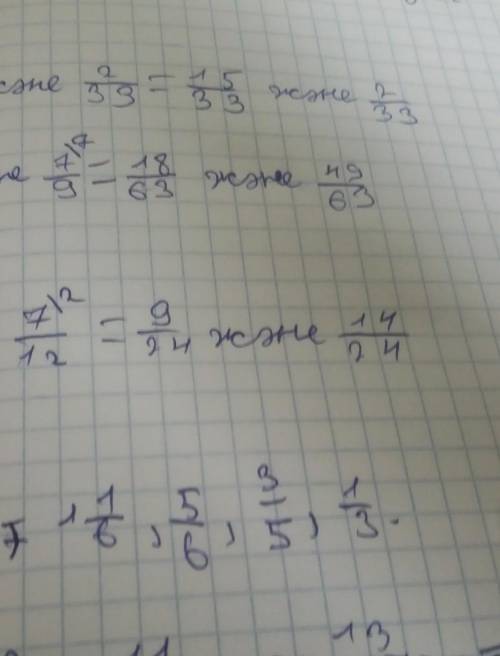 және 2/33 = 15/33 және 2/33
7\7/9 = 18/63 және 49/63
7\2/12 = 9/24 және 14/24
1 1/6, 5/6, 3/5, 1/3.
11 13